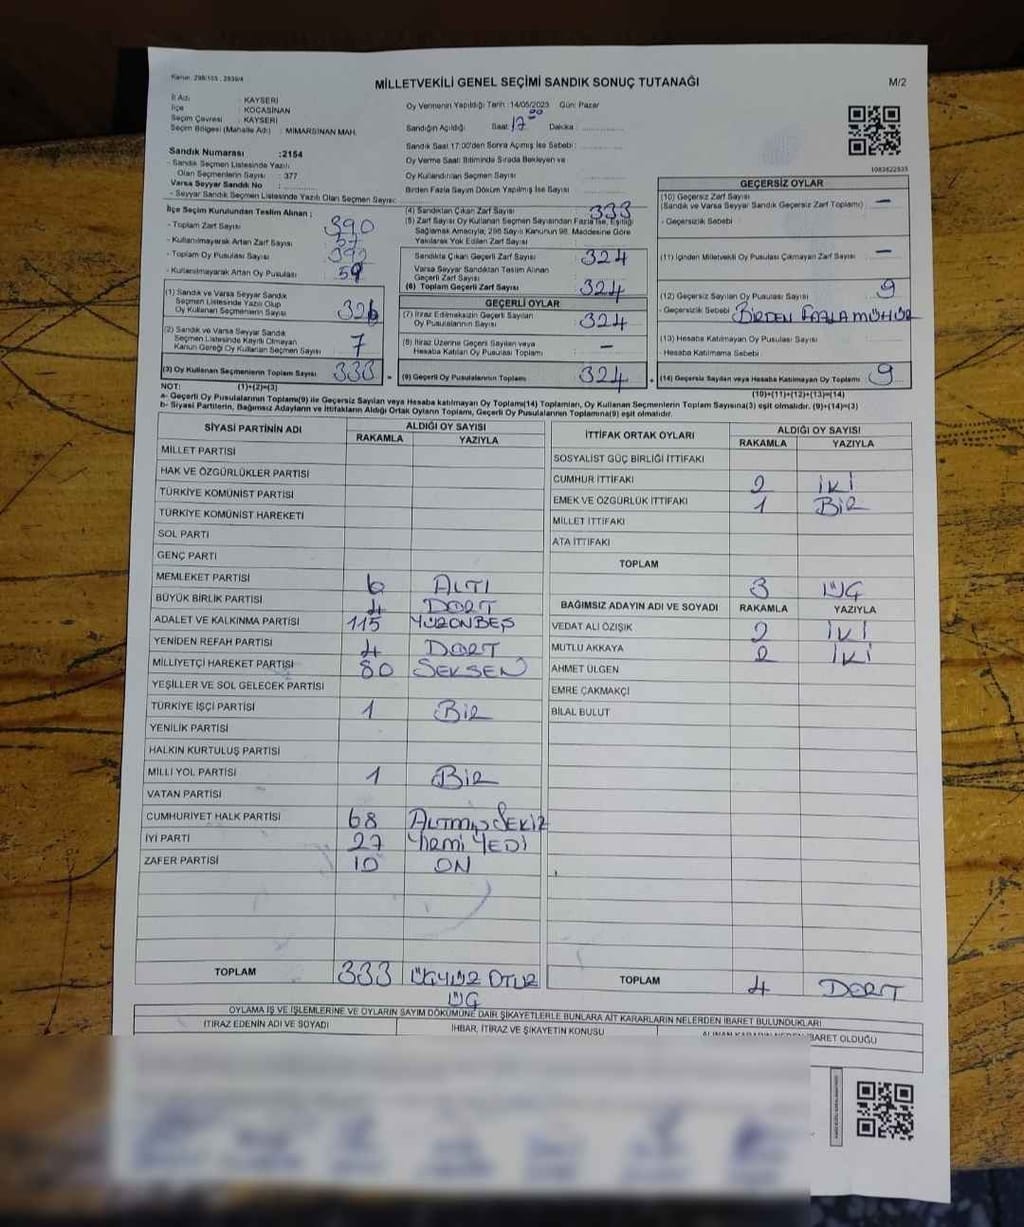 Kanun: 298/105 , 2839/4
MİLLETVEKİLİ GENEL SEÇİMİ SANDIK SONUÇ TUTANAĞI
M/2
İl Adı : KAYSERİ
İlçe : KOCASİNAN
Seçim Çevresi : KAYSERİ
Seçim Bölgesi (Mahalle Adı) : MİMARSİNAN MAH.
Sandık Numarası :2154
- Sandık Seçmen Listesinde Yazılı
Olan Seçmenlerin Sayısı : 377
Varsa Seyyar Sandık No :
- Seyyar Sandık Seçmen Listesinde Yazılı Olan Seçmen Sayısı:
Oy Vermenin Yapıldığı Tarih :14/05/2023 Gün: Pazar
Sandığın Açıldığı Saat 17 00 Dakika :
Sandık Saat 17:00'den Sonra Açımış İse Sebebi :
Oy Verme Saati Bitiminde Sırada Bekleyen ve
Oy Kullandırılan Seçmen Sayısı
Birden Fazla Sayım Döküm Yapılmış İse Sayısı
1083622835
İlçe Seçim Kurulundan Teslim Alınan ;
- Toplam Zarf Sayısı 390
- Kullanılmayarak Artan Zarf Sayısı 57
- Toplam Oy Pusulası Sayısı 392
- Kullanılmayarak Artan Oy Pusulası 59
(1) Sandık ve Varsa Seyyar Sandık
Seçmen Listesinde Yazılı Olup
Oy Kullanan Seçmenlerin Sayısı 326
(2) Sandık ve Varsa Seyyar Sandık
Seçmen Listesinde Kayıtlı Olmayan
Kanun Gereği Oy Kullanan Seçmen Sayısı 7
(3) Oy Kullanan Seçmenlerin Toplam Sayısı 333
(4) Sandıktan Çıkan Zarf Sayısı 333
(5) Zarf Sayısı Oy Kullanan Seçmen Sayısından Fazla İse, Eşitliği
Sağlamak Amacıyla, 298 Sayılı Kanunun 98. Maddesine Göre
Yakılarak Yok Edilen Zarf Sayısı
Sandıkta Çıkan Geçerli Zarf Sayısı 324
Varsa Seyyar Sandıktan Teslim Alınan
Geçerli Zarf Sayısı
(6) Toplam Geçerli Zarf Sayısı 324
GEÇERLİ OYLAR
(7) İtiraz Edilmeksizin Geçerli Sayılan
Oy Pusulalarının Sayısı 324
(8) İtiraz Üzerine Geçerli Sayılan veya
Hesaba Katılan Oy Pusulası Toplamı –
(9) Geçerli Oy Pusulalarının Toplamı 324
GEÇERSİZ OYLAR
(10) Geçersiz Zarf Sayısı
(Sandık ve Varsa Seyyar Sandık Geçersiz Zarf Toplamı) –
- Geçersizlik Sebebi
(11) İçinden Milletvekili Oy Pusulası Çıkmayan Zarf Sayısı –
(12) Geçersiz Sayılan Oy Pusulası Sayısı 9
- Geçersizlik Sebebi BİRDEN FAZLA MÜHÜR
(13) Hesaba Katılmayan Oy Pusulası Sayısı
- Hesaba Katılmama Sebebi
(14) Geçersiz Sayılan veya Hesaba Katılmayan Oy Toplamı 9
NOT: (1)+(2)=(3) (10)+(11)+(12)+(13)=(14)
a- Geçerli Oy Pusulalarının Toplamı(9) ile Geçersiz Sayılan veya Hesaba katılmayan Oy Toplamı(14) Toplamları, Oy Kullanan Seçmenlerin Toplam Sayısına(3) eşit olmalıdır. (9)+(14)=(3)
b- Siyasi Partilerin, Bağımsız Adayların ve İttifakların Aldığı Ortak Oyların Toplamı, Geçerli Oy Pusulalarının Toplamına(9) eşit olmalıdır.
SİYASİ PARTİNİN ADI ALDIĞI OY SAYISI
RAKAMLA YAZIYLA
MİLLET PARTİSİ
HAK VE ÖZGÜRLÜKLER PARTİSİ
TÜRKİYE KOMÜNİST PARTİSİ
TÜRKİYE KOMÜNİST HAREKETİ
SOL PARTİ
GENÇ PARTİ
MEMLEKET PARTİSİ 6 ALTI
BÜYÜK BİRLİK PARTİSİ 4 DÖRT
ADALET VE KALKINMA PARTİSİ 115 YÜZONBEŞ
YENİDEN REFAH PARTİSİ 4 DÖRT
MİLLİYETÇİ HAREKET PARTİSİ 80 SEKSEN
YEŞİLLER VE SOL GELECEK PARTİSİ
TÜRKİYE İŞÇİ PARTİSİ 1 BİR
YENİLİK PARTİSİ
HALKIN KURTULUŞ PARTİSİ
MİLLİ YOL PARTİSİ 1 BİR
VATAN PARTİSİ
CUMHURİYET HALK PARTİSİ 68 ALTMIŞ SEKİZ
İYİ PARTİ 27 YİRMİ YEDİ
ZAFER PARTİSİ 10 ON
TOPLAM 333 ÜÇYÜZ OTUZ
ÜÇ
İTTİFAK ORTAK OYLARI ALDIĞI OY SAYISI
RAKAMLA YAZIYLA
SOSYALİST GÜÇ BİRLİĞİ İTTİFAKI
CUMHUR İTTİFAKI 2 İKİ
EMEK VE ÖZGÜRLÜK İTTİFAKI 1 BİR
MİLLET İTTİFAKI
ATA İTTİFAKI
TOPLAM 3 ÜÇ
BAĞIMSIZ ADAYIN ADI VE SOYADI RAKAMLA YAZIYLA
VEDAT ALİ ÖZIŞIK 2 İKİ
MUTLU AKKAYA 2 İKİ
AHMET ÜLGEN
EMRE ÇAKMAKÇI
BİLAL BULUT
TOPLAM 4 DÖRT
OYLAMA İŞ VE İŞLEMLERİNE VE OYLARIN SAYIM DÖKÜMÜNE DAİR ŞİKAYETLERLE BUNLARA AİT KARARLARIN NELERDEN İBARET BULUNDUKLARI
İTİRAZ EDENİN ADI VE SOYADI İHBAR, İTİRAZ VE ŞİKAYETİN KONUSU ALINAN KARARIN NEDEN İBARET OLDUĞU